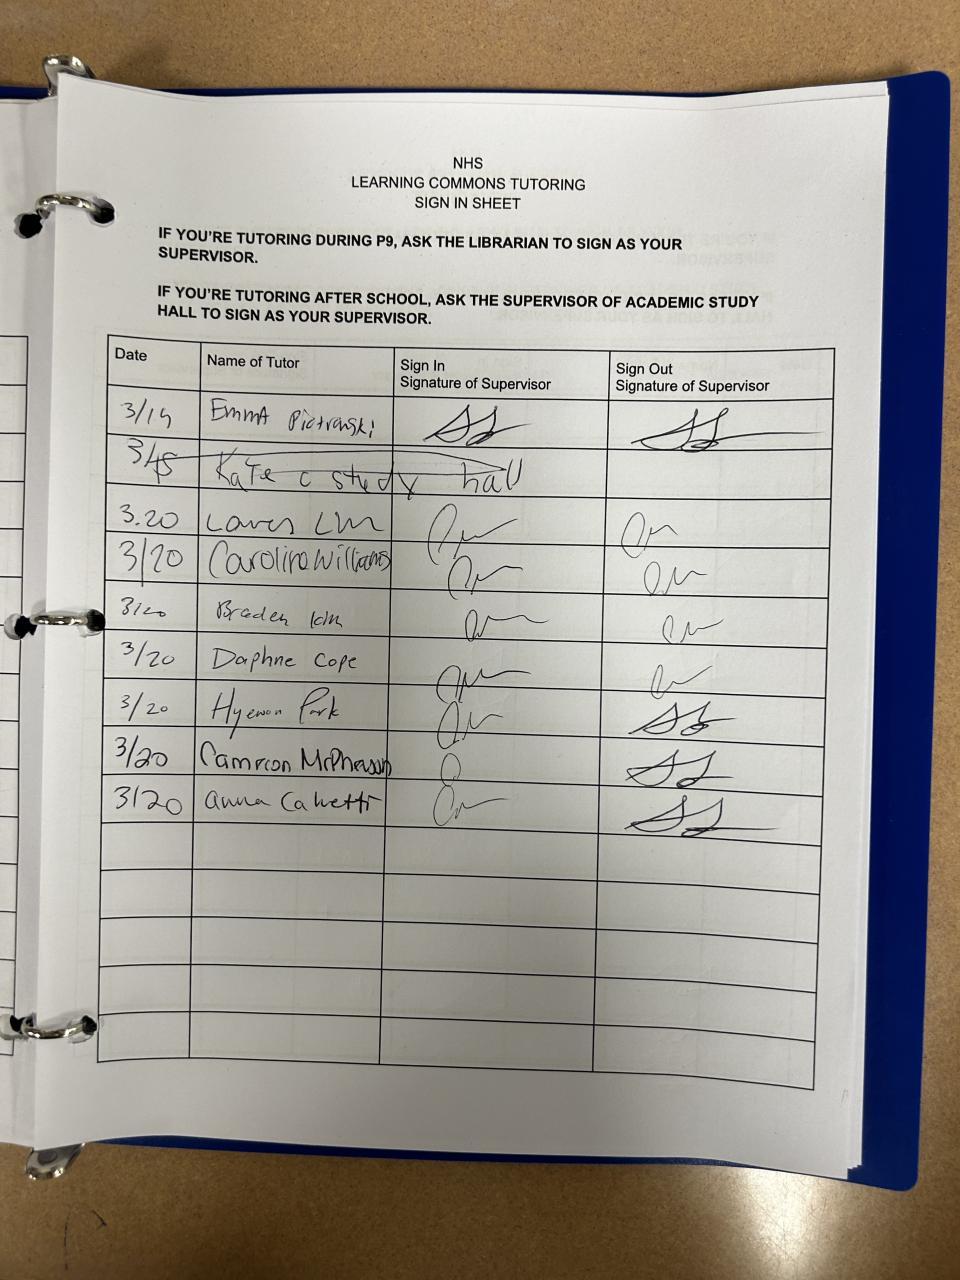 NHS
LEARNING COMMONS TUTORING
SIGN IN SHEET
IF YOU'RE TUTORING DURING P9, ASK THE LIBRARIAN TO SIGN AS YOUR
SUPERVISOR.
IF YOU'RE TUTORING AFTER SCHOOL, ASK THE SUPERVISOR OF ACADEMIC STUDY
HALL TO SIGN AS YOUR SUPERVISOR.
Date Name of Tutor Sign In Signature of Supervisor Sign Out Signature of Supervisor
Emma Piotrowski
Kate c study hall
3.20
3/20 Carolina Williams
3/20 Braden Kim
3/20 Daphne Cope
3/20 Hyewon Park
3/20 Cameron McPherson
3/20 anna Calvetti